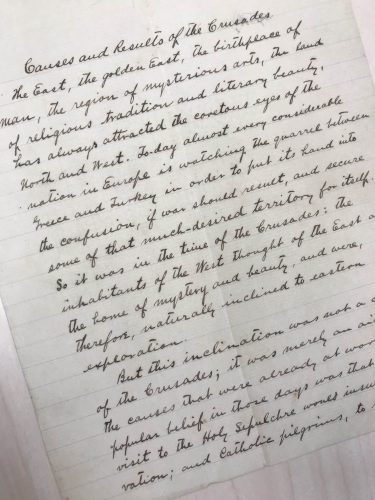 Causes and Results of the Crusades
The East, the golden East, the birthplace of
man, the region of mysterious arts, the land
of religious tradition and literary beauty,
has always attracted the covetous eyes of the
North and West. To-day almost every considerable
nation in Europe is watching the quarrel between
Greece and Turkey in order to put its hand into
the confusion, if war should result, and secure
some of that much-desired territory for itself.
So it was in the time of the Crusades: the
inhabitants of the West thought of the East a
the home of mystery and beauty, and were,
therefore, naturally inclined to eastern
exploration.
But this inclination was not a c
of the Crusades; it was merely an ai
the causes that were already at wor
popular belief in those days was that
visit to the Holy Sepulchre would insu
vation; and Catholic pilgrims, to